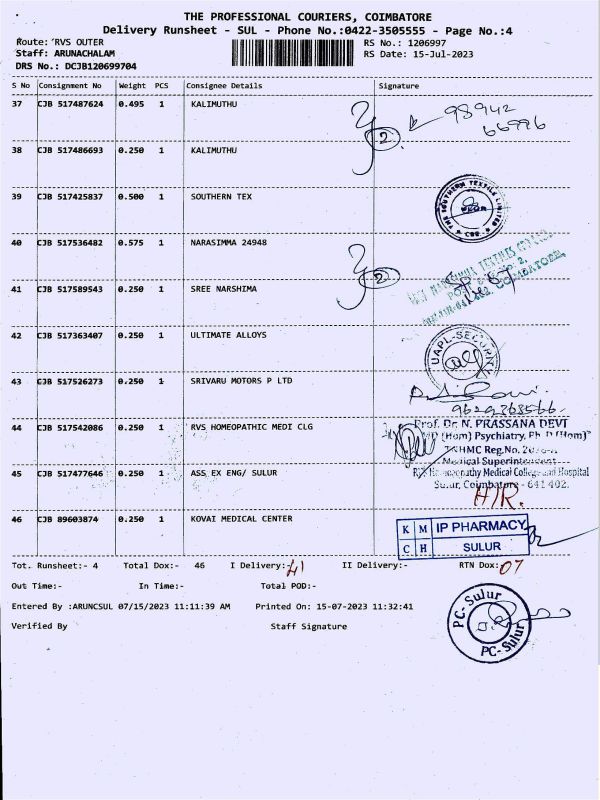 THE PROFESSIONAL COURIERS, COIMBATORE
Delivery Runsheet - SUL - Phone No.:0422-3505555 - Page No.:4
Route: RVS OUTER
RS No.: 1206997
Staff: ARUNACHALAM
RS Date: 15-Jul-2023
DRS No.: DCJB120699704
S No Consignment No Weight PCS Consignee Details Signature
37 CJB 517487624 0.495 1 KALIMUTHU
98942
66996
38 CJB 517486693 0.250 1 KALIMUTHU
2
39 CJB 517425837 0.500 1 SOUTHERN TEX
THE SOUTHERN TEXTILE LIMITED
CBE.
40 CJB 517536482 0.575 1 NARASIMMA 24948
2
41 CJB 517589543 0.250 1 SREE NARSHIMA
COIMBATORE
42 CJB 517363407 0.250 1 ULTIMATE ALLOYS
UAPL-SECURITY
43 CJB 517526273 0.250 1 SRIVARU MOTORS P LTD
9629368566
44 CJB 517542086 0.250 1 RVS HOMEOPATHIC MEDI CLG
Prof. Dr. N. PRASSANA DEVI
MD (Hom) Psychiatry, Ph.D (Hom)
TNHMC Reg.No.
Medical Superintendent
45 CJB 517477646 0.250 1 ASS EX ENG/ SULUR
RVS Homoeopathy Medical College and Hospital
Sulur, Coimbatore - 641 402.
H/R.
46 CJB 89603874 0.250 1 KOVAI MEDICAL CENTER
K M IP PHARMACY
C H SULUR
Tot. Runsheet:- 4 Total Dox:- 46 I Delivery:- 41 II Delivery:- RTN Dox:- 07
Out Time:- In Time:- Total POD:-
Entered By :ARUNCSUL 07/15/2023 11:11:39 AM Printed On: 15-07-2023 11:32:41
Verified By Staff Signature
PC-Sulur
PC-Sulur